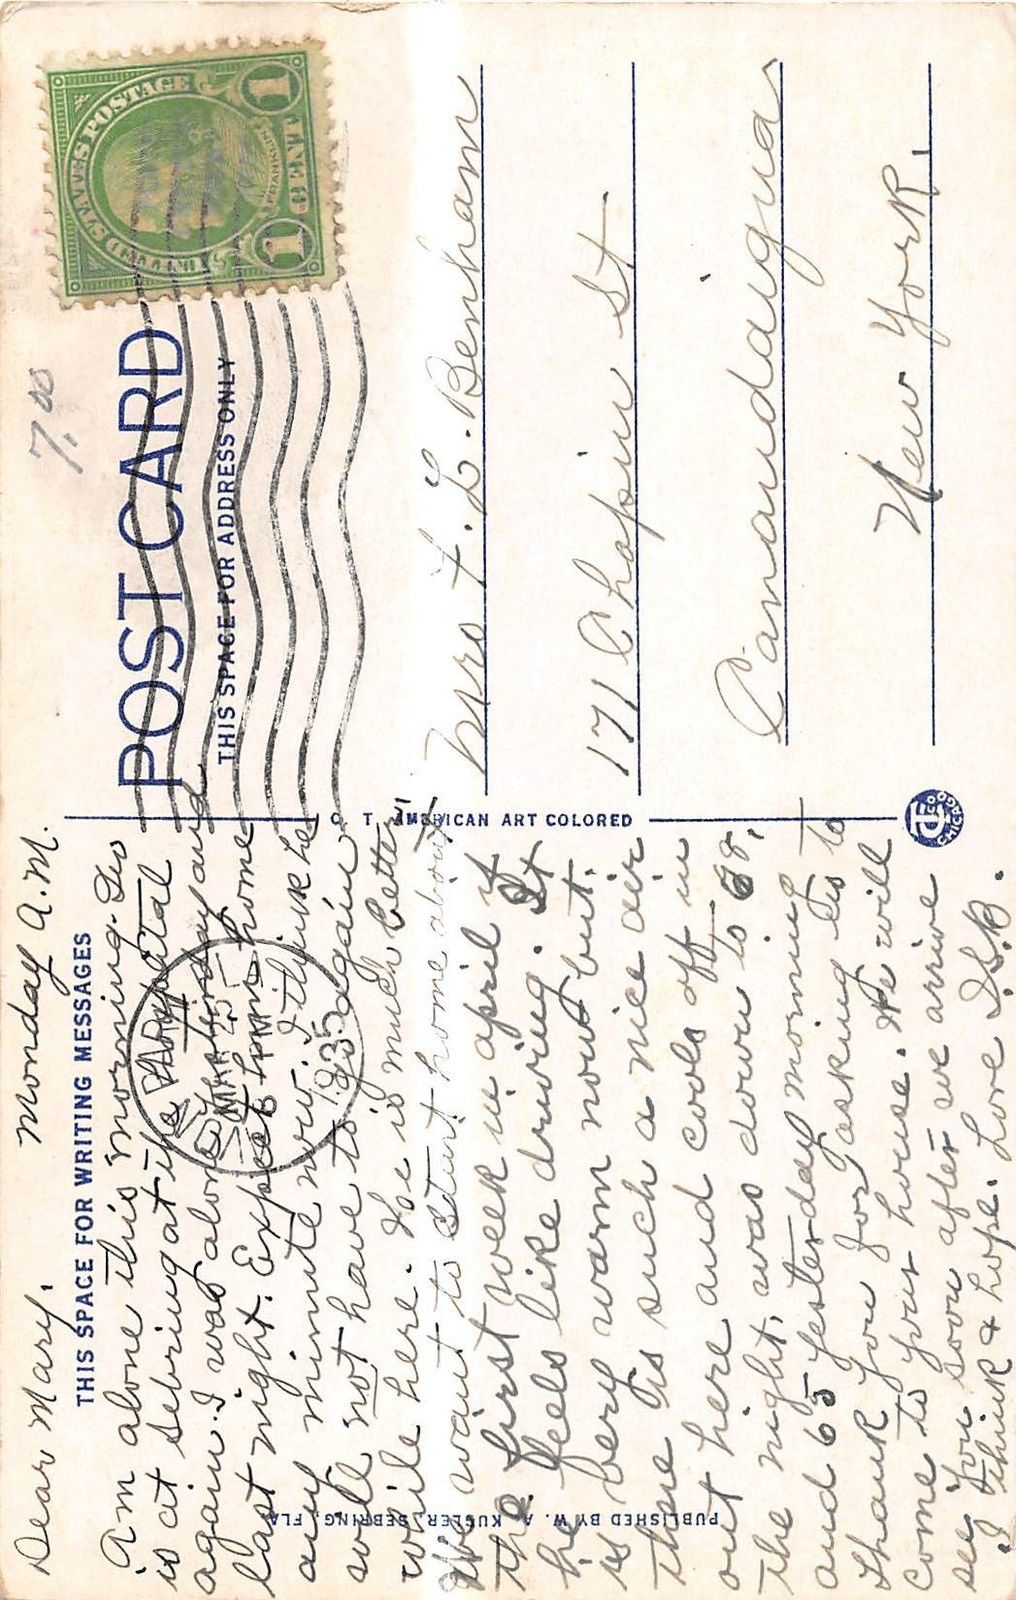 Dear Mary. Monday A.M.
THIS SPACE FOR WRITING MESSAGES
Am alone this morning.
is at Sebring at the Hospital
again. I was alone yesterday and
last night. Expect him home
any minute now. I think he
will not have to go again
while here. He is much better.
We want to start home about
the first week in April if
he feels like driving. It
is very warm now but
there is such a nice air
out here and cools off in
the night, was down to 68,
and 65 yesterday morning
Thank you for asking us to
come to your house. We will
see you soon after we arrive
I think & hope. Love D.S.B.
PUBLISHED BY W. A. KUGLER, SEBRING, FLA.
POST CARD
THIS SPACE FOR ADDRESS ONLY
7.00
UNITED STATES POSTAGE
FRANKLIN
1 CENT 1
MAR 25
6 PM
1935
C. T. AMERICAN ART COLORED
Mrs F. L. Benham
171 Chapin St
Canandaigua
New York.